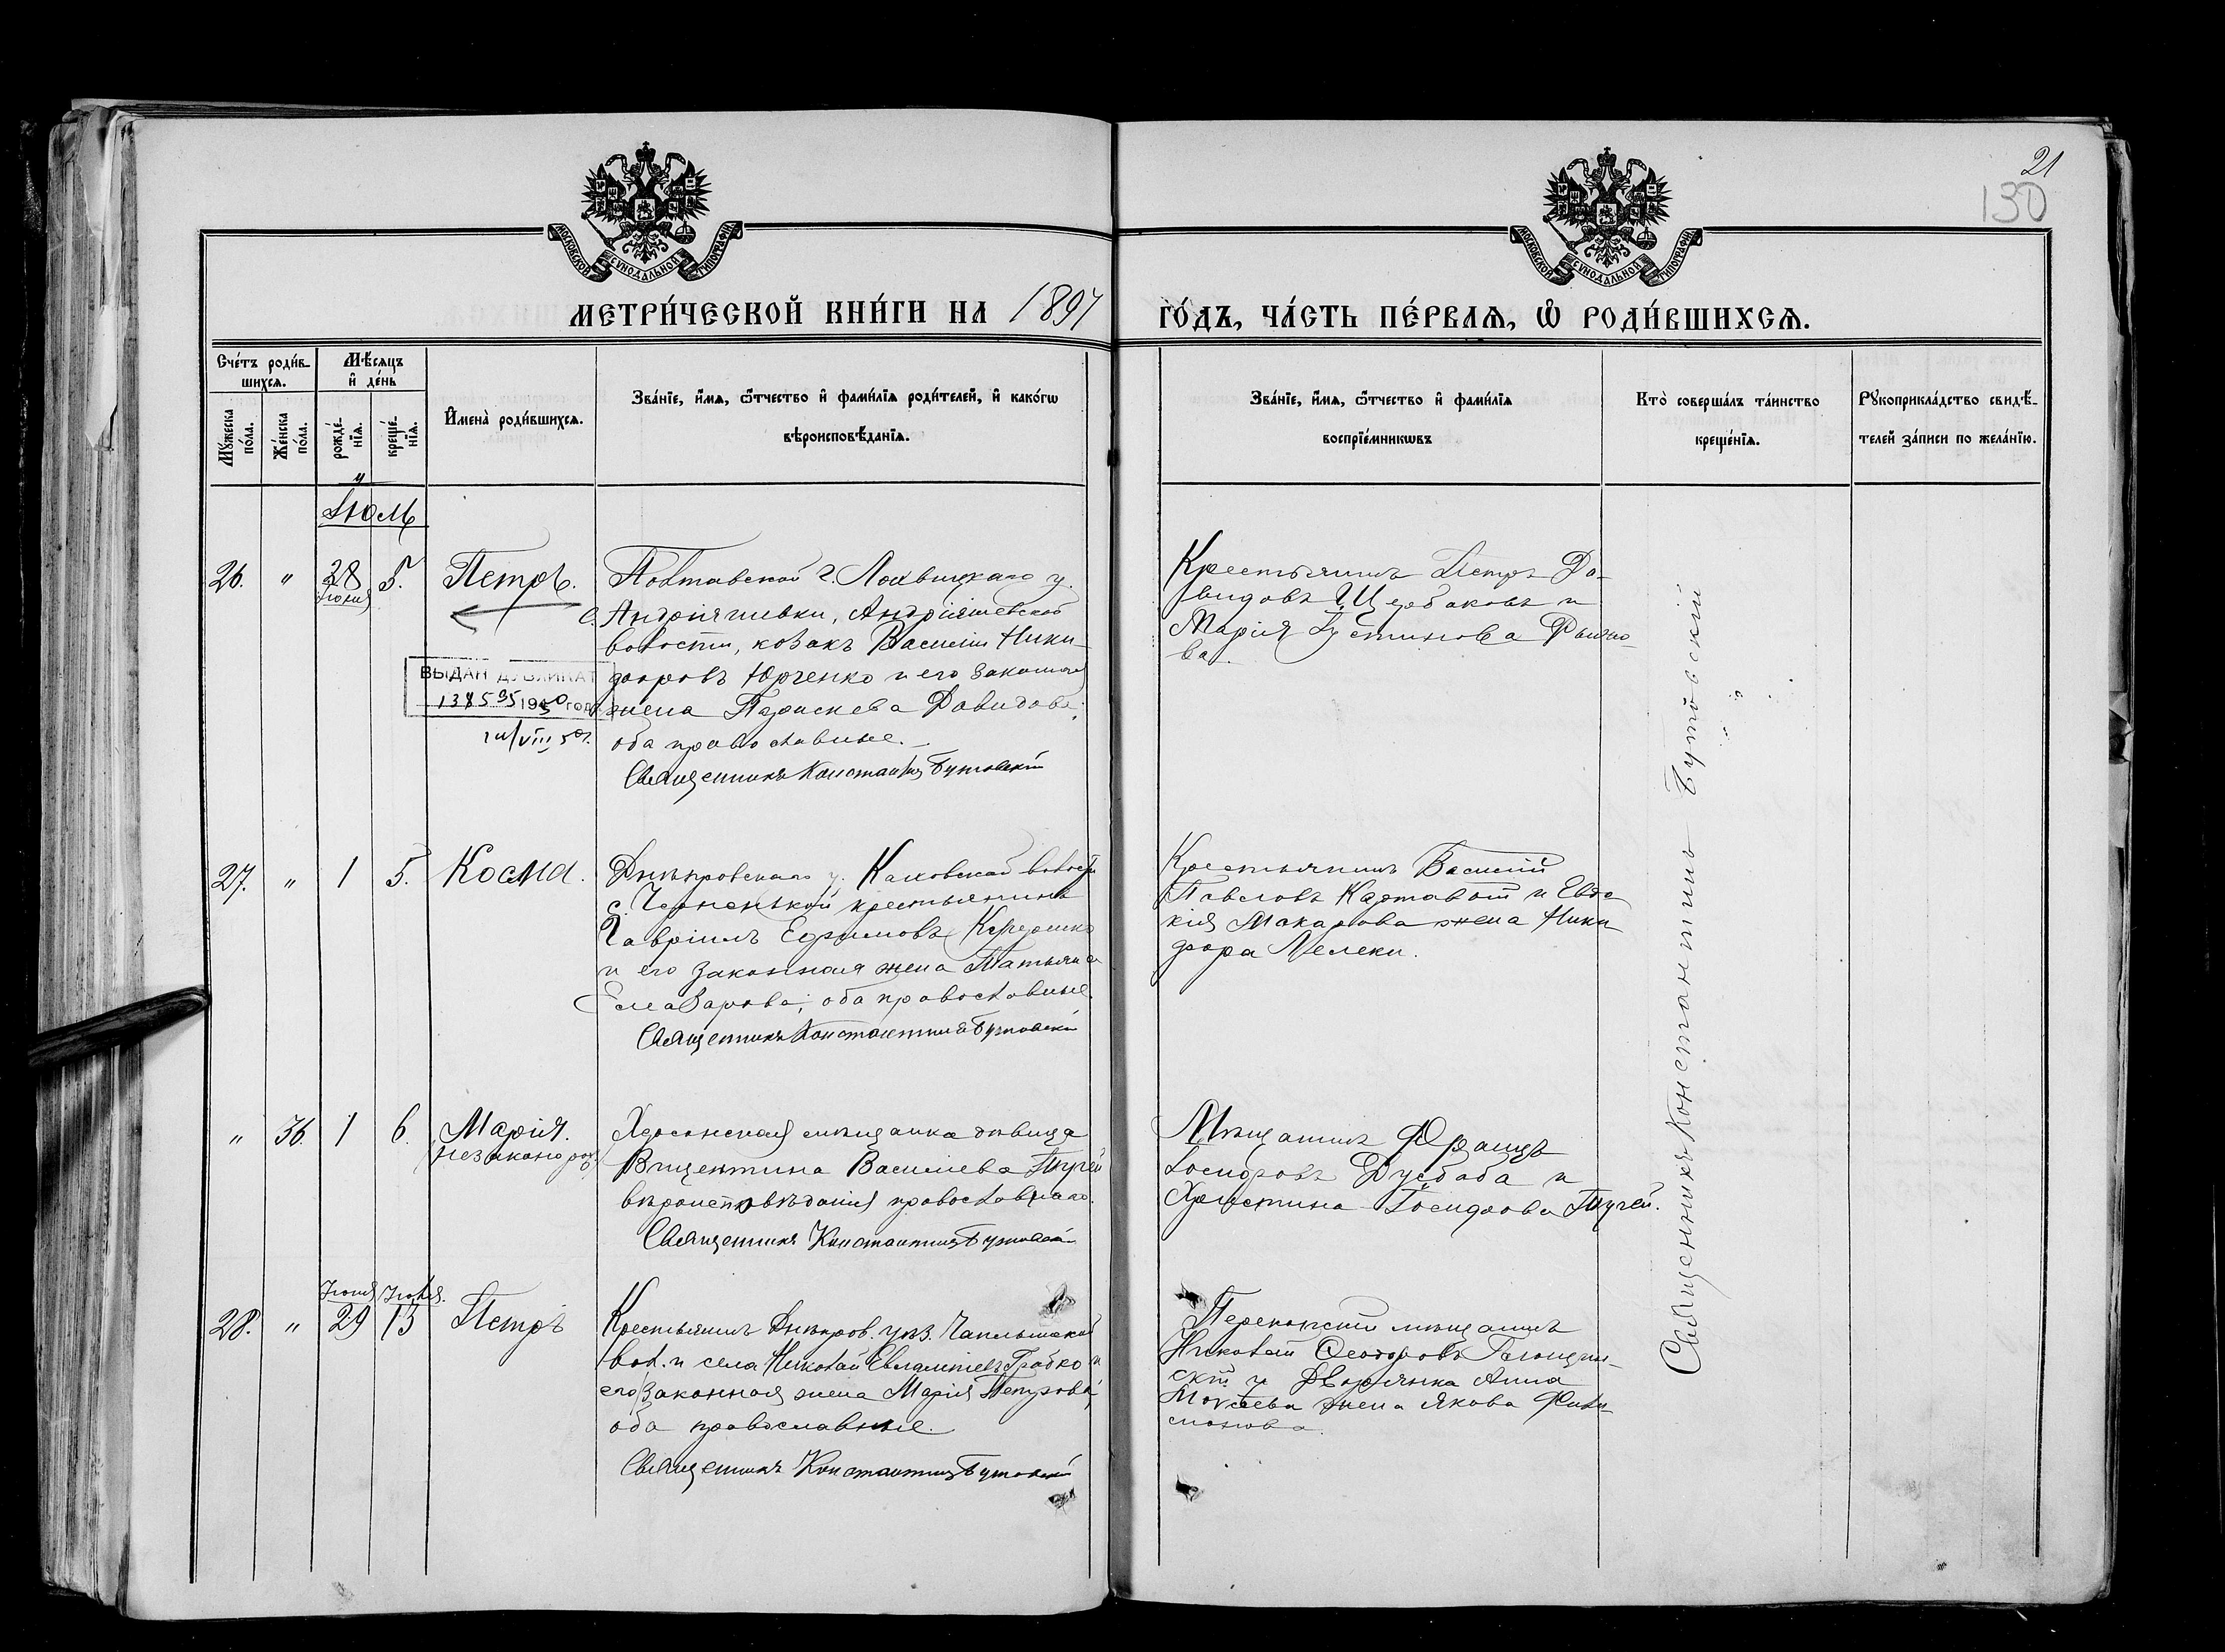 21
130
МОСКОВСКОЙ СѴНОДАЛЬНОЙ ТИПОГРАФІИ
МОСКОВСКОЙ СѴНОДАЛЬНОЙ ТИПОГРАФІИ
МЕТРИ́ЧЕСКОЙ КНИ́ГИ НА 1897
ГО́ДЪ, ЧА́СТЬ ПЕ́РВАЯ, Ѡ РОДИ́ВШИХСЯ.
Сче́тъ роди́в-
шихся.
Мѣ́сяцъ
и де́нь
Мꙋ́жеска
по́ла.
Же́нска
по́ла.
рожде́-
нїя.
креще́-
нїя.
Имена̀ роди́вшихся.
Зва́нїе, и́мя, ѻ́тчество и фами́лїя роди́телей, и како́гѡ
вѣроисповѣ́данїя.
Зва́нїе, и́мя, ѻ́тчество и фами́лїя
воспрїе́мникѡвъ
Кто̀ соверша́лъ та́инство
креще́нїя.
Рꙋкоприкла́дство свидѣ́-
телей за́писи по жела́нїю.
Іюль
26. " 28 Іюня 5. Петръ.
Полтавской г. Лохвицкаго у.
с. Андріяшивки, Андріяшевской
волости, козакъ Василій Ники-
форовъ Юрченко и его законная
жена Параскева Давидова;
оба православные.
Священникъ Константинъ Бутовскій
ВЫДАН ДУБЛИКАТ
1950 год
Крестьянинъ Петръ Да-
видовъ Щербаковъ и
Марія Іустинова
27. " 1 5. Косма.
Днѣпровскаго у. Каховской волости
с. Черненькой крестьянинъ
Гавріилъ Ефимовъ
и его законная жена Татьяна
Елеазарова; оба православные.
Священникъ Константинъ Бутовскій
Крестьянинъ Василій
Павловъ Картавый и Евдо
кія Макарова жена Ники
фора Лелеки.
" 36. 1 6. Марія.
незаконорож.
Херсонская мѣщанка дѣвица
Вицентина Васильева
вѣроисповѣданія православнаго.
Священникъ Константинъ Бутовскій
Мѣщанинъ Францъ
Іосифовъ Дусбаба и
Христина Іосифова
Іюня Іюля.
28. " 29 13 Петръ
Крестьянинъ Днѣпров. уѣз. Чаплынской
вол. и села Николай Евлампіевъ Грабко и
его законная жена Марія Петрова;
оба православные.
Священникъ Константинъ Бутовскій
Перекопскій мѣщанинъ
Николай Ѳеодоровъ
и Дворянка Анна
Моѵсеева жена Якова Фили-
монова.
Священникъ Константинъ Бутовскій